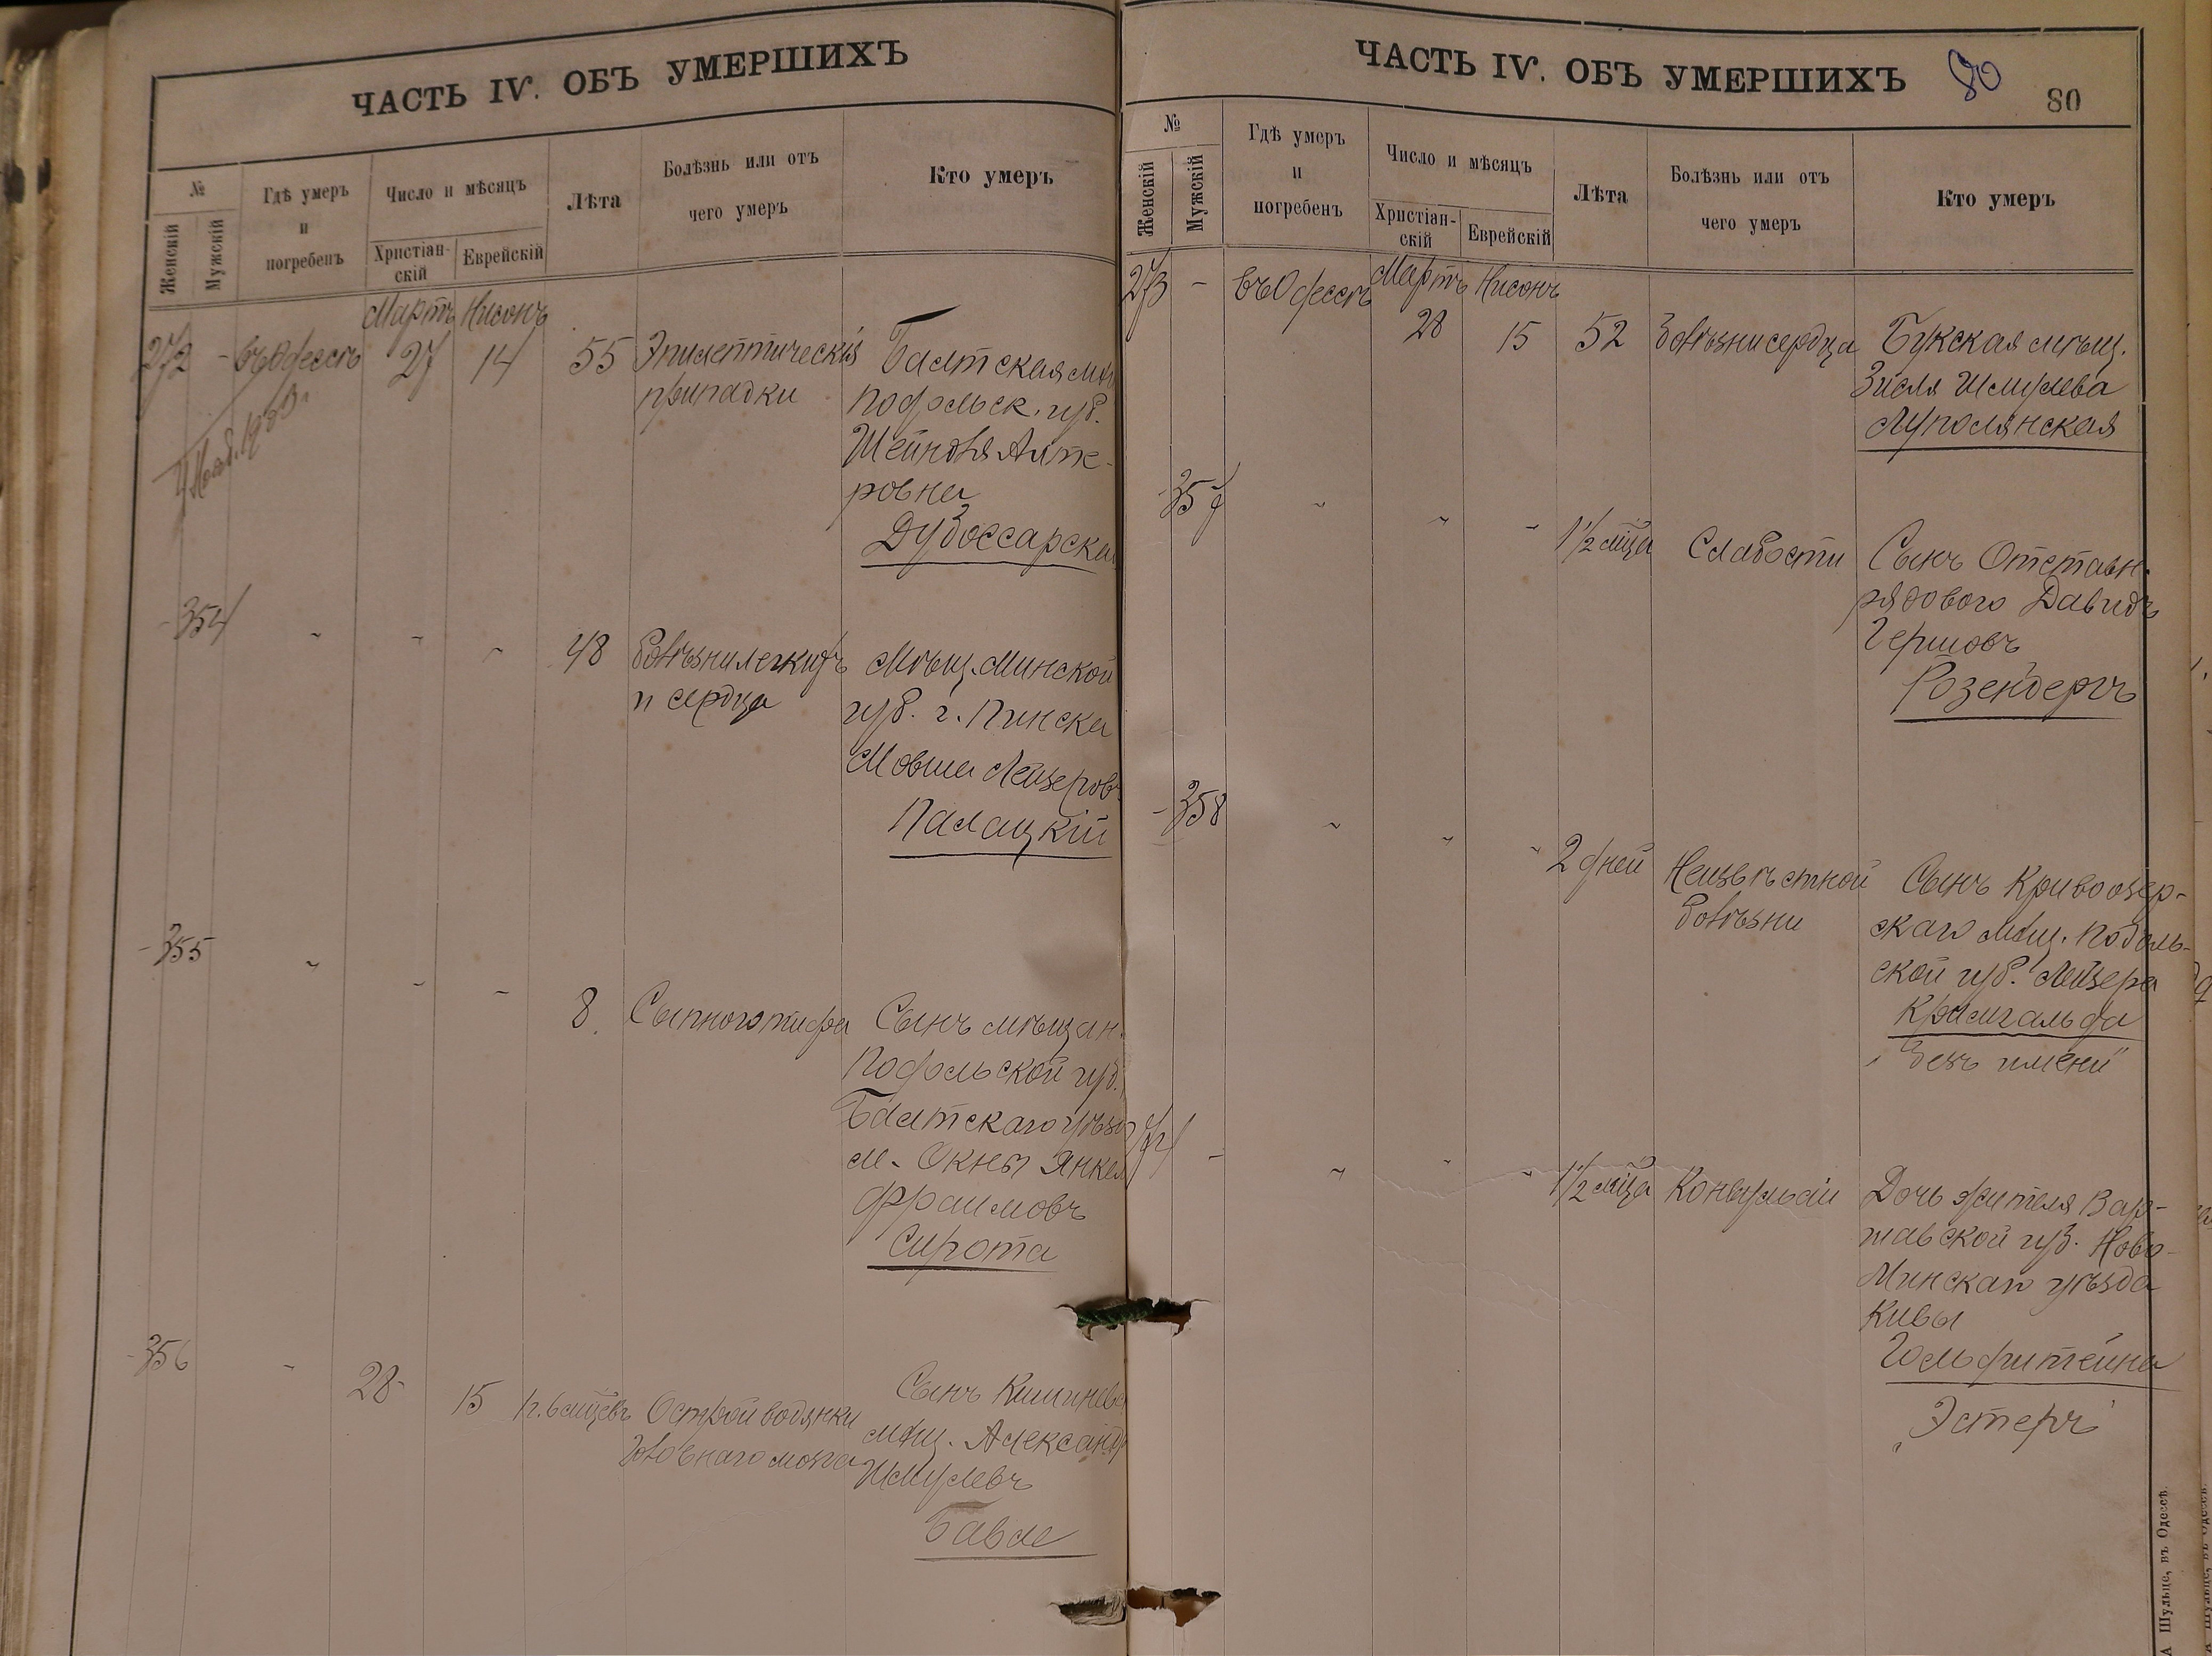 ЧАСТЬ IV. ОБЪ УМЕРШИХЪ
№
Женскій
Мужскій
Гдѣ умеръ
и
погребенъ
Число и мѣсяцъ
Христіан-
скій
Еврейскій
Лѣта
Болѣзнь или отъ
чего умеръ
Кто умеръ
Мартъ Нисонъ
272 - въ Одессѣ 27 14 55 Эпилептическія Балтская мѣщ
припадки Подольск. губ.
Шейндля Алте-
ровна
Дубоссарская
- 354 " " " 48 Болѣзни легкихъ Мѣщ. Минской
и сердца губ. г. Пинска
Мовша Лейзеров
Палацкій
- 355 " " " 8 Сыпного тифа Сынъ мѣщан.
Подольской губ.
Балтскаго уѣзд
м. Окны Янкел
Фраимовъ
Сирота
- 356 " 28 15 1 г. 6 мѣсцевъ Острой водянки Сынъ Кишинев
головнаго мозга мѣщ. Александр
Шмулевъ
ЧАСТЬ IV. ОБЪ УМЕРШИХЪ
80
80
№
Женскій
Мужскій
Гдѣ умеръ
и
погребенъ
Число и мѣсяцъ
Христіан-
скій
Еврейскій
Лѣта
Болѣзнь или отъ
чего умеръ
Кто умеръ
Мартъ Нисонъ
273 - въ Одессѣ 28 15 52 Болѣзни сердца Букская мѣщ.
Зисля Шмулева
Луполянская
- 357 " " " 1½ мѣца Слабости Сынъ Отставн.
рядового Давидъ
Гершовъ
Розенбергъ
- 358 " " " 2 дней Неизвѣстной Сынъ Кривоозер-
болѣзни скаго мѣщ. Подоль-
ской губ. Лейзера
Кримгальда
"безъ имени"
274 - " " " 1½ мѣца Конвульсіи Дочь жителя Вар-
шавской губ. Ново-
Минскаго уѣзда
Кивы
Гольфштейна
"Эстеръ"
А Шульце, въ Одессѣ.